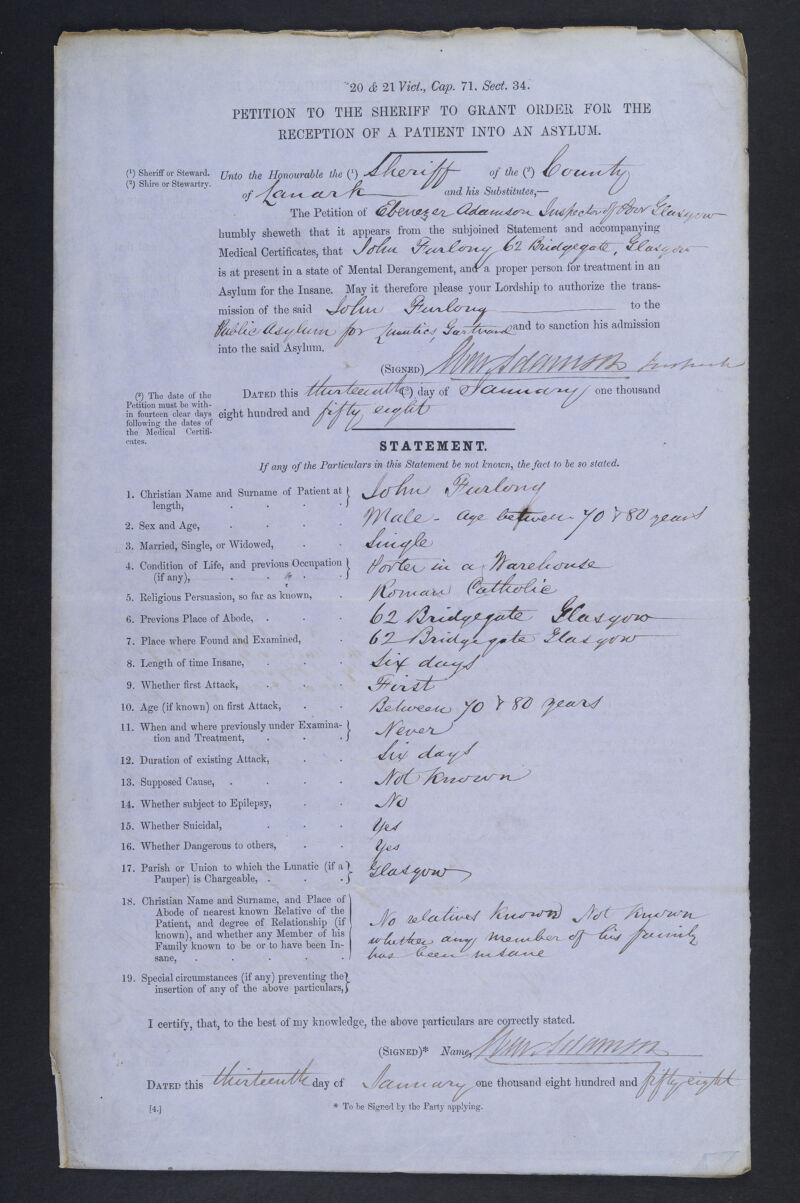 20 & 21 Vict., Cap. 71. Sect. 34.
PETITION TO THE SHERIFF TO GRANT ORDER FOR THE
RECEPTION OF A PATIENT INTO AN ASYLUM.
(1) Sheriff or Steward.
(2) Shire or Stewartry.
Unto the Honourable the (1) Sheriff of the (2) County
of Lanark and his Substitutes,—
The Petition of Ebenezer Adamson Inspector of Poor Glasgow
humbly sheweth that it appears from the subjoined Statement and accompanying
Medical Certificates, that John Furlong 62 Bridgegate, Glasgow
is at present in a state of Mental Derangement, and a proper person for treatment in an
Asylum for the Insane. May it therefore please your Lordship to authorize the trans-
mission of the said John Furlong to the
Public Asylum for Lunatics, Gartnavel and to sanction his admission
into the said Asylum.
(SIGNED) Adamson
(3) The date of the
Petition must be with-
in fourteen clear days
following the dates of
the Medical Certifi-
cates.
DATED this thirteenth (3) day of January one thousand
eight hundred and fifty eight
STATEMENT.
If any of the Particulars in this Statement be not known, the fact to be so stated.
1. Christian Name and Surname of Patient at
length, John Furlong
2. Sex and Age, Male - age between 70 & 80 years
3. Married, Single, or Widowed, Single
4. Condition of Life, and previous Occupation
(if any), Porter in a Warehouse
5. Religious Persuasion, so far as known, Roman Catholic
6. Previous Place of Abode, 62 Bridgegate Glasgow
7. Place where Found and Examined, 62 Bridgegate Glasgow
8. Length of time Insane, Six days
9. Whether first Attack, First
10. Age (if known) on first Attack, Between 70 & 80 years
11. When and where previously under Examina-
tion and Treatment, Never
12. Duration of existing Attack, Six days
13. Supposed Cause, Not Known
14. Whether subject to Epilepsy, No
15. Whether Suicidal, Yes
16. Whether Dangerous to others, Yes
17. Parish or Union to which the Lunatic (if a
Pauper) is Chargeable, Glasgow
18. Christian Name and Surname, and Place of
Abode of nearest known Relative of the
Patient, and degree of Relationship (if
known), and whether any Member of his
Family known to be or to have been In-
sane,
No relatives Known Not Known
whether any member of his family
has been insane
19. Special circumstances (if any) preventing the
insertion of any of the above particulars,
I certify, that, to the best of my knowledge, the above particulars are correctly stated.
(SIGNED)* Name, Adamson
DATED this thirteenth day of January one thousand eight hundred and fifty eight
[4.]
* To be Signed by the Party applying.